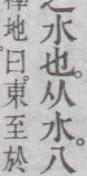 之水也。从水。八
地曰。東至於